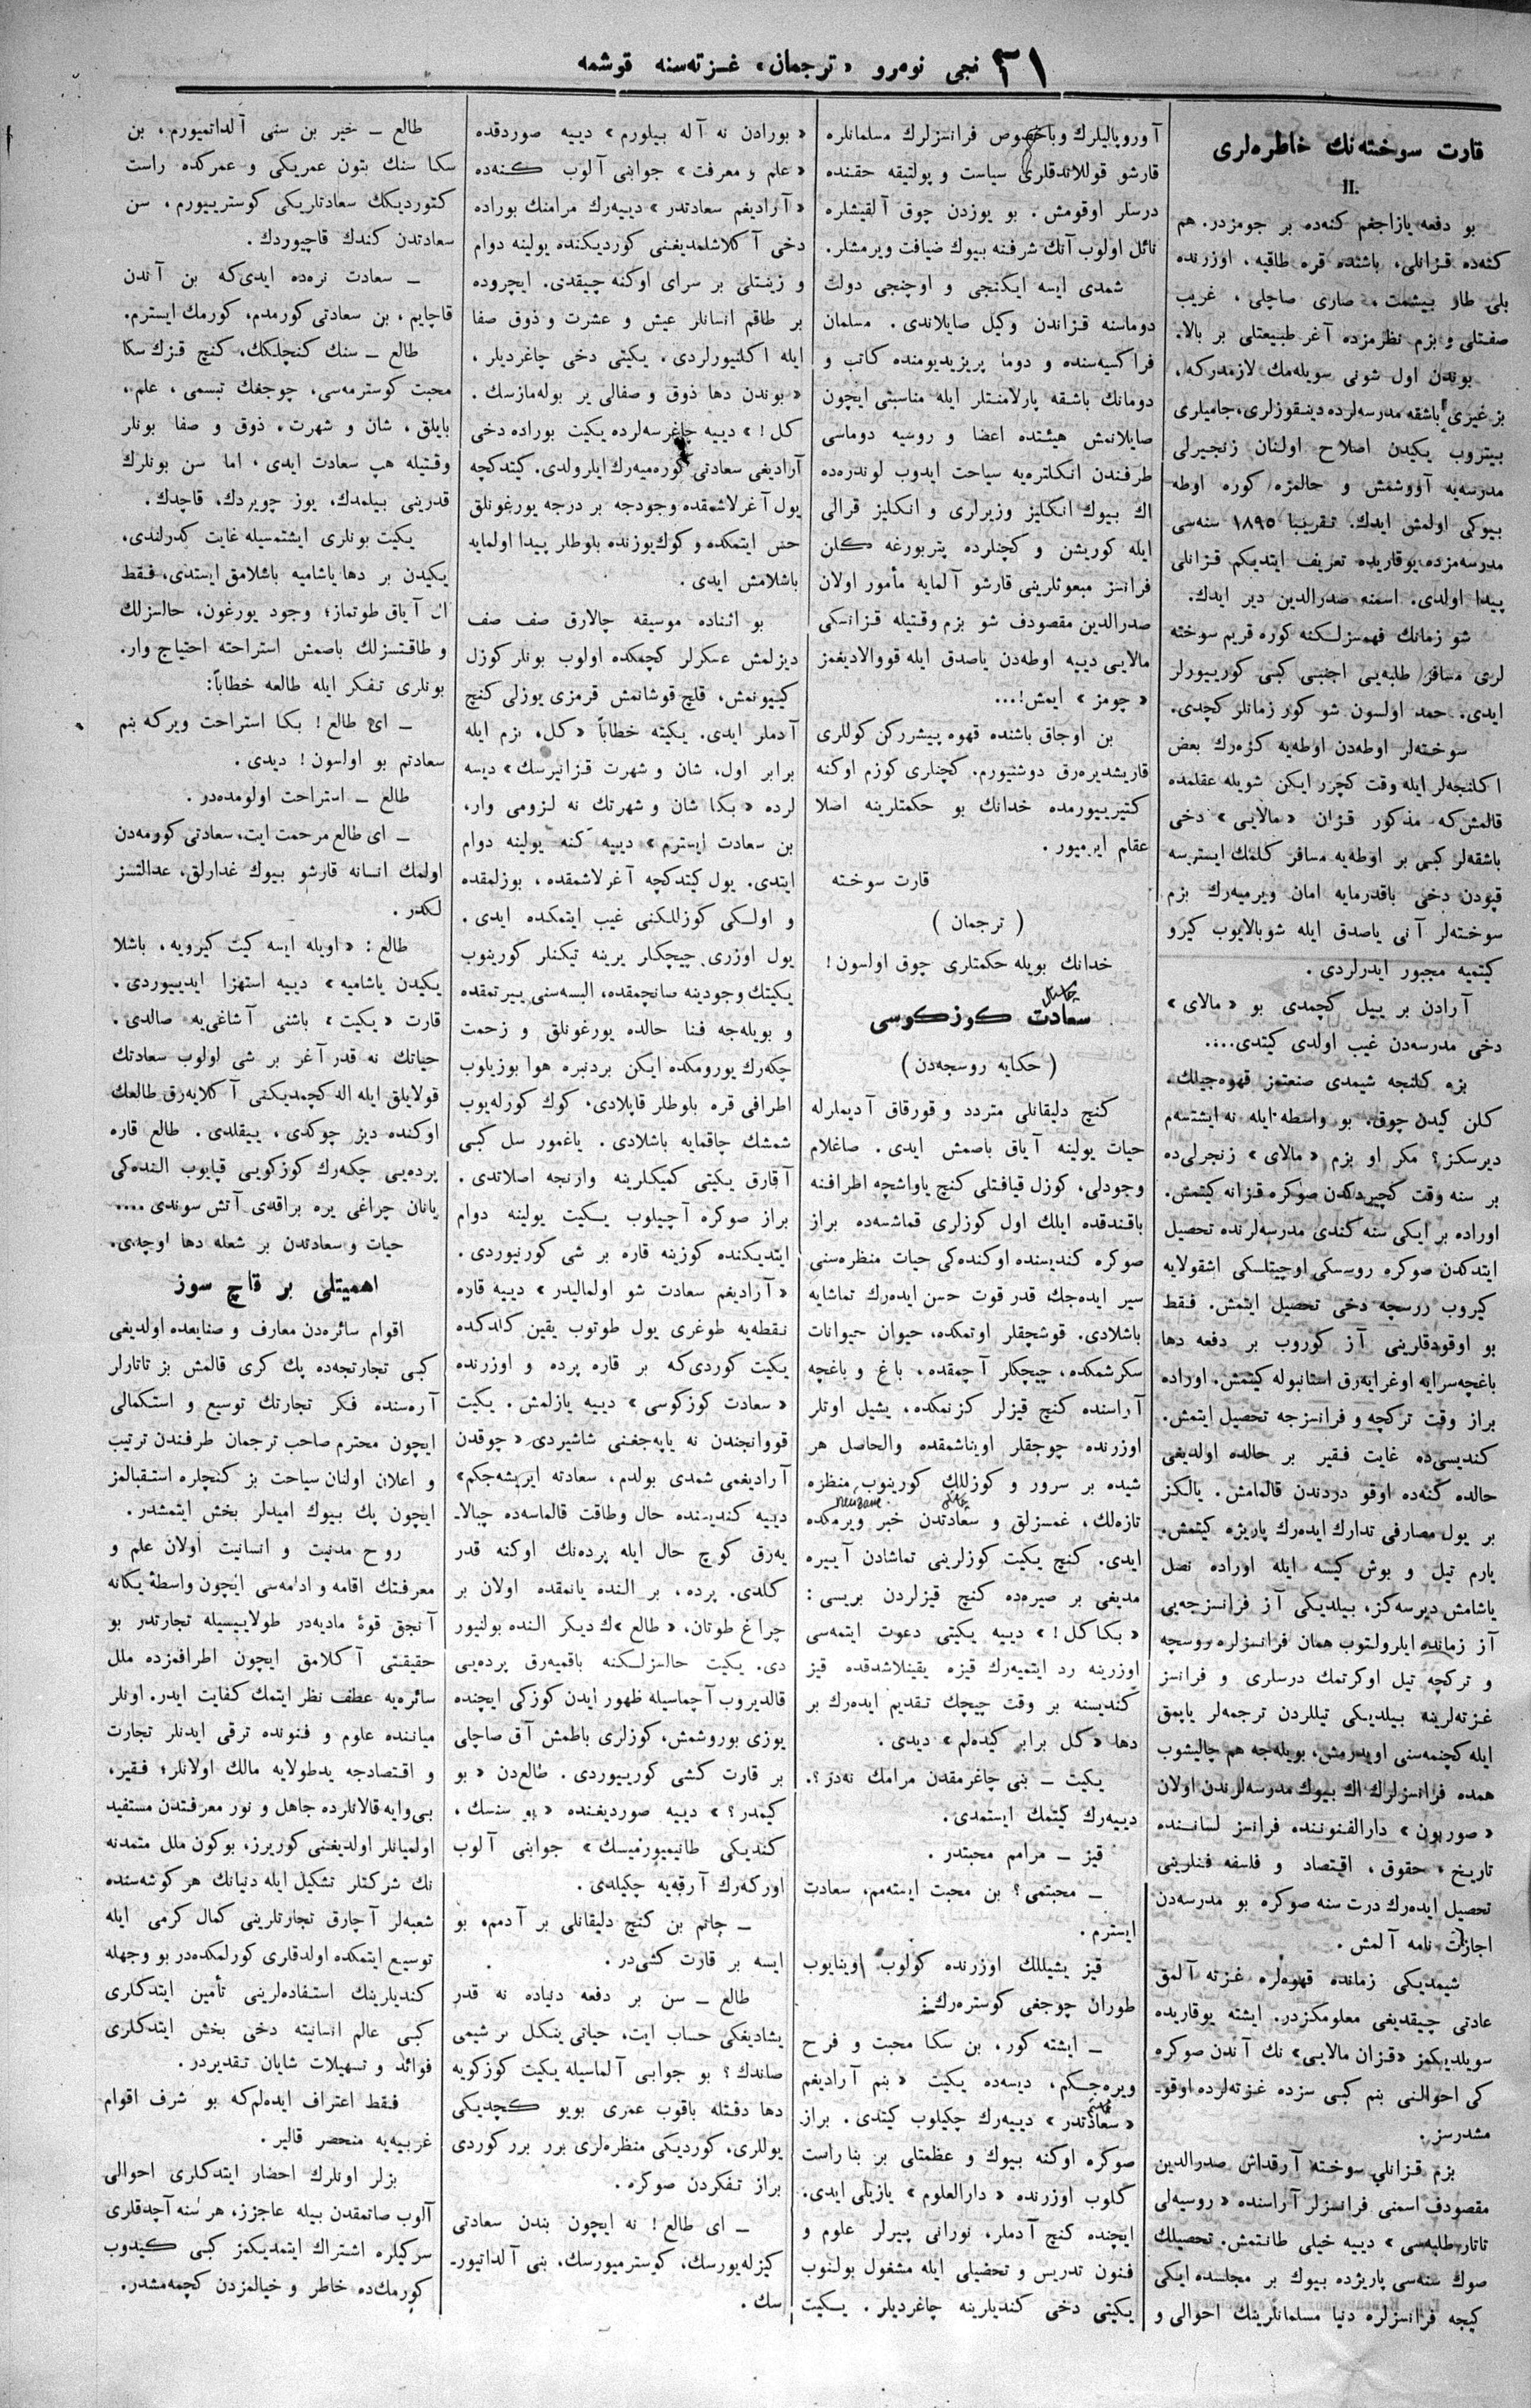 ٣١ نجی نومرو «ترجمان» غزته‌سنه قوشمه
قارت سوخته‌نك خاطره‌لری
II.
بو دفعه یازاجغم كنه‌ده بر جومزدر. هم
كنه‌ده قزانلی، باشنده قره طاقیه، اوزرنده
بلی طار بیشمت، صاری صاچلی، غریب
صفتلی و بزم نظرمزده آغر طبیعتلی بر بالا.
بوندن اول شونی سویله‌مك لازمدركه،
بزغیری باشقه مدرسه‌لرده دینقوزلری، جامیلری
بیتروب یكیدن اصلاح اولنان زنجیرلی
مدرسه‌یه آووشمش و حالمزه كوره اوطه
بیوكی اولمش ایدك. تقریبا ١٨٩٥ سنه‌سی
مدرسه‌مزده یوقاریده تعریف ایتدیكم قزانلی
پیدا اولدی. اسمنه صدرالدین دیر ایدك.
شو زمانك فهمسزلكنه كوره قریم سوخته
لری مسافر طلبه‌یی اجنبی كبی كورییورلر
ایدی. حمد اولسون شو كور زمانلر كچدی.
سوخته‌لر اوطه‌دن اوطه‌یه كزه‌رك بعض
اكلنجه‌لر ایله وقت كچرر ایكن شویله عقلمده
قالمش‌كه مذكور قزان «مالایی» دخی
باشقه‌لر كبی بر اوطه‌یه مسافر كلمك ایسترسه
قپودن دخی باقدرمایه امان ویرمیه‌رك بزم
سوخته‌لر آنی یاصدق ایله شوبالایوب كیرو
كیتمیه مجبور ایدرلردی.
آرادن بر ییل كچمدی بو «مالای»
دخی مدرسه‌دن غیب اولدی كیتدی....
بزه كلنجه شیمدی صنعتمز قهوه‌جیلك،
كلن كیدن چوق. بو واسطه ایله نه ایشتسه‌م
دیرسكز؟ مكر او بزم «مالای» زنجرلی‌ده
بر سنه وقت كچیردكدن صوكره قزانه كیتمش.
اوراده بر ایكی سنه كندی مدرسه‌لرنده تحصیل
ایتدكدن صوكره روسسكی اوچیتلسكی اشقولایه
كیروب روسچه دخی تحصیل ایتمش. فقط
بو اوقودقلرینی آز كوروب بر دفعه دها
باغچه‌سرایه اوغرایه‌رق استانبوله كیتمش. اوراده
براز وقت تركچه و فرانسزجه تحصیل ایتمش.
كندیسی‌ده غایت فقیر بر حالده اولدیغی
حالده كنه‌ده اوقو دردندن قالمامش. یالكز
بر یول مصارفی تدارك ایده‌رك پاریژه كیتمش.
یارم تیل و بوش كیسه ایله اوراده نصل
یاشامش دیرسه‌كز، بیلدیكی آز فرانسزجه‌یی
آز زمانده ایلرولتوب همان فرانسزلره روسچه
و تركچه تیل اوكرتمك درسلری و فرانسز
غزته‌لرینه بیلدیكی تیللردن ترجمه‌لر یاپمق
ایله كچنمه‌سنی اویدرمش، بویله‌جه هم چالیشوب
همده فرانسزلرك اك بیوك مدرسه‌لرندن اولان
«صوربون» دارالفنوننده فرانسز لساننده
تاریخ، حقوق، اقتصاد و فلسفه فنلرینی
تحصیل ایده‌رك درت سنه صوكره بو مدرسه‌دن
اجازت نامه آلمش.
شیمدیكی زمانده قهوه‌لره غزته آلمق
عادتی چیقدیغی معلومكزدر. ایشته یوقاریده
سویلدیكمز «قزان مالایی» نك آندن صوكره
كی احوالنی بنم كبی سزده غزته‌لرده اوقو-
مشدرسز.
بزم قزانلی سوخته آرقداش صدرالدین
مقصودف اسمنی فرانسزلر آراسنده «روسیه‌لی
تاتار طلبه‌سی» دییه خیلی طانتمش. تحصیلك
صوك سنه‌سی پاریژده بیوك بر مجلسده ایكی
كیجه فرانسزلره دنیا مسلمانلرینك احوالی و
آوروپالیلرك وباخصوص فرانسزلرك مسلمانلره
قارشو قوللاندقلری سیاست و پولتیقه حقنده
درسلر اوقومش. بو یوزدن چوق آلقیشلره
نائل اولوب آنك شرفنه بیوك ضیافت ویرمشلر.
شمدی ایسه ایكنجی و اوچنجی دولت
دوماسنه قزاندن وكیل صایلاندی. مسلمان
فراكسیه‌سنده و دوما پریزیدیومنده كاتب و
دومانك باشقه پارلامنتلر ایله مناسبتی ایچون
صایلانمش هیئتده اعضا و روسیه دوماسی
طرفندن انكلتره‌یه سیاحت ایدوب لوندره‌ده
اك بیوك انكلیز وزیرلری و انكلیز قرالی
ایله كوریشن و كچنلرده پتربورغه كلن
فرانسز مبعوثلرینی قارشو آلمایه مأمور اولان
صدرالدین مقصودف شو بزم وقتیله قزانسكی
مالایی دییه اوطه‌دن یاصدق ایله قووالادیغمز
«چومز» ایمش!...
بن اوجاق باشنده قهوه پیشرركن كوللری
قاریشدیره‌رق دوشنیورم. كچنلری كوزم اوكنه
كتیرییورمده خدانك بو حكمتلرینه اصلا
عقلم ایرمیور.
قارت سوخته
(ترجمان)
خدانك بویله حكمتلری چوق اولسون!
سعادت كوزكوسی
(حكایه روسجه‌دن)
كنچ دلیقانلی متردد و قورقاق آدیملرله
حیات یولینه آیاق باصمش ایدی. صاغلام
وجودلی، كوزل قیافتلی كنچ یاواشچه اطرافنه
باقندقده ایلك اول كوزلری قماشسه‌ده براز
صوكره كندیسنده اوكنده‌كی حیات منظره‌سنی
سیر ایده‌جك قدر قوت حس ایده‌رك تماشایه
باشلادی. قوشچقلر اوتمكده، حیوان حیوانات
سكرشمكده، چیچكلر آچمقده، باغ و باغچه
آراسنده كنچ قیزلر كزنمكده، یشیل اوتلر
اوزرنده چوجقلر اویناشمقده والحاصل هر
شیده بر سرور و كوزللك كورینوب منظره
تازه‌لك، غمسزلق و سعادتدن خبر ویرمكده
ایدی. كنچ یكیت كوزلرینی تماشادن آییره
مدیغی بر صیره‌ده كنچ قیزلردن بریسی:
«بكا كل!» دییه یكیتی دعوت ایتمه‌سی
اوزرینه رد ایتمیه‌رك قیزه یقینلاشدقده قیز
كندیسنه بر وقت چیچك تقدیم ایده‌رك بر
دها «كل برابر كیده‌لم» دیدی.
یكیت ــ بنی چاغرمقدن مرامك نه‌در؟.
دییه‌رك كیتمك ایستمدی.
قیز ــ مرامم محبتدر.
ــ محبتمی؟ بن محبت ایسته‌مم، سعادت
ایسترم.
قیز یشیللك اوزرنده كولوب اوینایوب
طوران چوجغی كوستره‌رك:
ــ ایشته كور، بن سكا محبت و فرح
ویره‌جكم، دیسه‌ده یكیت «بنم آرادیغم
«سعادتدر» دییه‌رك چكیلوب كیتدی. براز
صوكره اوكنه بیوك و عظمتلی بر بنا راست
كلوب اوزرنده «دارالعلوم» یازیلی ایدی.
ایچنده كنچ آدملر، نورانی پیرلر علوم و
فنون تدریس و تحصیلی ایله مشغول بولنوب
یكیتی دخی كندیلرینه چاغردیلر. یكیت
«بورادن نه آله بیلورم» دییه صوردقده
«علم و معرفت» جوابنی آلوب كنه‌ده
«آرادیغم سعادتدر» دییه‌رك مرامنك بوراده
دخی آكلاشلمدیغنی كوردیكنده یولینه دوام
و زینتلی بر سرای اوكنه چیقدی. ایچروده
بر طاقم انسانلر عیش و عشرت و ذوق صفا
ایله اكلنیورلردی. یكیتی دخی چاغردیلر،
«بوندن دها ذوق و صفالی یر بوله‌مازسك.
كل!» دییه چاغرسه‌لرده یكیت بوراده دخی
آرادیغی سعادتی كوره‌میه‌رك ایلرولدی. كیتدكچه
یول آغرلاشمقده وجودجه بر درجه یورغونلق
حس ایتمكده و كوك‌یوزنده بلوطلر پیدا اولمایه
باشلامش ایدی.
بو اثناده موسیقه چالارق صف صف
دیزلمش عسكرلر كچمكده اولوب بونلر كوزل
كیینونمش، قلیچ قوشانمش قرمزی یوزلی كنچ
آدملر ایدی. یكیته خطاباً «كل، بزم ایله
برابر اول، شان و شهرت قزانیرسك» دیسه
لرده «بكا شان و شهرتك نه لزومی وار،
بن سعادت ایسترم» دییه كنه یولینه دوام
ایتدی. یول كیتدكچه آغرلاشمقده، بوزلمقده
و اولكی كوزللكنی غیب ایتمكده ایدی.
یول اوزری چیچكلر یرینه تیكنلر كورینوب
یكیتك وجودینه صانچمقده، البسه‌سنی ییرتمقده
و بویله‌جه فنا حالده یورغونلق و زحمت
چكه‌رك یورومكده ایكن بردنبره هوا بوزیلوب
اطرافی قره بلوطلر قاپلادی. كوك كورله‌یوب
شمشك چاقمایه باشلادی. یاغمور سل كبی
آقارق یكیتی كمیكلرینه وارنجه اصلاتدی.
براز صوكره آچیلوب یكیت یولینه دوام
ایتدیكنده كوزینه قاره بر شی كورنیوردی.
«آرادیغم سعادت شو اولمالیدر» دییه قاره
نقطه‌یه طوغری یول طوتوب یقین كلدكده
یكیت كوردی‌كه بر قاره پرده و اوزرنده
«سعادت كوزكوسی» دییه یازلمش. یكیت
قووانجندن نه یاپه‌جغنی شاشیردی. «چوقدن
آرادیغمی شمدی بولدم، سعادته ایریشه‌جكم»
دییه كندیسنده حال وطاقت قالماسه‌ده چبالا-
یه‌رق كوچ حال ایله پرده‌نك اوكنه قدر
كلدی. پرده، بر النده یانمقده اولان بر
چراغ طوتان، «طالع»ك دیكر النده بولنیور
دی. یكیت حالسزلكنه باقمیه‌رق پرده‌یی
قالدیروب آچماسیله ظهور ایدن كوزكی ایچنده
یوزی بوروشمش، كوزلری باطمش آق صاچلی
بر قارت كشی كورییوردی. طالع‌دن «بو
كیمدر؟» دییه صوردیغنده «بو سنسك،
كندیكی طانیمیورمیسك» جوابنی آلوب
اوركه‌رك آرقه‌یه چكیلدی.
ــ جانم بن كنچ دلیقانلی بر آدمم، بو
ایسه بر قارت كشی‌در.
طالع ــ سن بر دفعه دنیاده نه قدر
یشادیغكی حساب ایت، حیاتی ینكل بر شیمی
صاندك؟ بو جوابی آلماسیله یكیت كوزكویه
دها دقتله باقوب عمری بویو كچدیكی
یوللری، كوردیكی منظره‌لری برر برر كوردی
براز تفكردن صوكره.
ــ ای طالع! نه ایچون بندن سعادتی
كیزله‌یورسك، كوسترمیورسك، بنی آلداتیور-
سك.
طالع ــ خیر بن سنی آلداتمیورم، بن
سكا سنك بتون عمریكی و عمركده راست
كتوردیكك سعادتلریكی كوسترییورم، سن
سعادتدن كندك قاچیوردك.
ــ سعادت نره‌ده ایدی‌كه بن آندن
قاچایم، بن سعادتی كورمدم، كورمك ایسترم.
طالع ــ سنك كنچلكك، كنچ قزك سكا
محبت كوسترمه‌سی، چوجغك تبسمی، علم،
بایلق، شان و شهرت، ذوق و صفا بونلر
وقتیله هپ سعادت ایدی، اما سن بونلرك
قدرینی بیلمدك، یوز چویردك، قاچدك.
یكیت بونلری ایشتمسیله غایت كدرلندی،
یكیدن بر دها یاشامیه باشلامق ایستدی، فقط
ال آیاق طوتماز؛ وجود یورغون، حالسزلك
و طاقتسزلك باصمش استراحته احتیاج وار.
بونلری تفكر ایله طالعه خطاباً:
ــ ای طالع! بكا استراحت ویركه بنم
سعادتم بو اولسون! دیدی.
طالع ــ استراحت اولومده‌در.
ــ ای طالع مرحمت ایت، سعادتی كورمه‌دن
اولمك انسانه قارشو بیوك غدارلق، عدالتسز
لكدر.
طالع: «اویله ایسه كیت كیرویه، باشلا
یكیدن یاشامیه» دییه استهزا ایدییوردی.
قارت «یكیت» باشنی آشاغی‌یه صالدی.
حیاتك نه قدر آغر بر شی اولوب سعادتك
قولایلق ایله اله كچمدیكنی آكلایه‌رق طالعك
اوكنده دیز چوكدی، ییقلدی. طالع قاره
پرده‌یی چكه‌رك كوزكویی قپایوب النده‌كی
یانان چراغی یره براقدی آتش سوندی....
حیات و سعادتدن بر شعله دها اوچدی.
اهمیتلی بر قاچ سوز
اقوام سائره‌دن معارف و صنایعده اولدیغی
كبی تجارتجه‌ده پك كری قالمش بز تاتارلر
آره‌سنده فكر تجارتك توسیع و استكمالی
ایچون محترم صاحب ترجمان طرفندن ترتیب
و اعلان اولنان سیاحت بز كنچلره استقبالمز
ایچون پك بیوك امیدلر بخش ایتمشدر.
روح مدنیت و انسانیت اولان علم و
معرفتك اقامه و ادامه‌سی ایچون واسطهٔ یكانه
آنجق قوهٔ مادیه‌در طولاییسیله تجارتدر بو
حقیقتی آكلامق ایچون اطرافمزده ملل
سائره‌یه عطف نظر ایتمك كفایت ایدر. اونلر
میاننده علوم و فنونده ترقی ایدنلر تجارت
و اقتصادجه یدطولایه مالك اولانلر؛ فقیر،
بی‌وایه قالانلرده جاهل و نور معرفتدن مستفید
اولمیانلر اولدیغنی كوریرز. بوكون ملل متمدنه
نك شركتلر تشكیل ایله دنیانك هر كوشه‌سنده
شعبه‌لر آچارق تجارتلرینی كمال كرمی ایله
توسیع ایتمكده اولدقلری كورلمكده‌در بو وجهله
كندیلرینك استفاده‌لرینی تأمین ایتدكلری
كبی عالم انسانیته دخی بخش ایتدكلری
فوائد و تسهیلات شایان تقدیردر.
فقط اعتراف ایده‌لم‌كه بو شرف اقوام
غربیه‌یه منحصر قالیر.
بزلر اونلرك احضار ایتدكلری احوالی
آلوب صاتمقدن بیله عاجزز، هر سنه آچدقلری
سركیلره اشتراك ایتمدیكمز كبی كیدوب
كورمك‌ده خاطر و خیالمزدن كچمه‌مشدر.